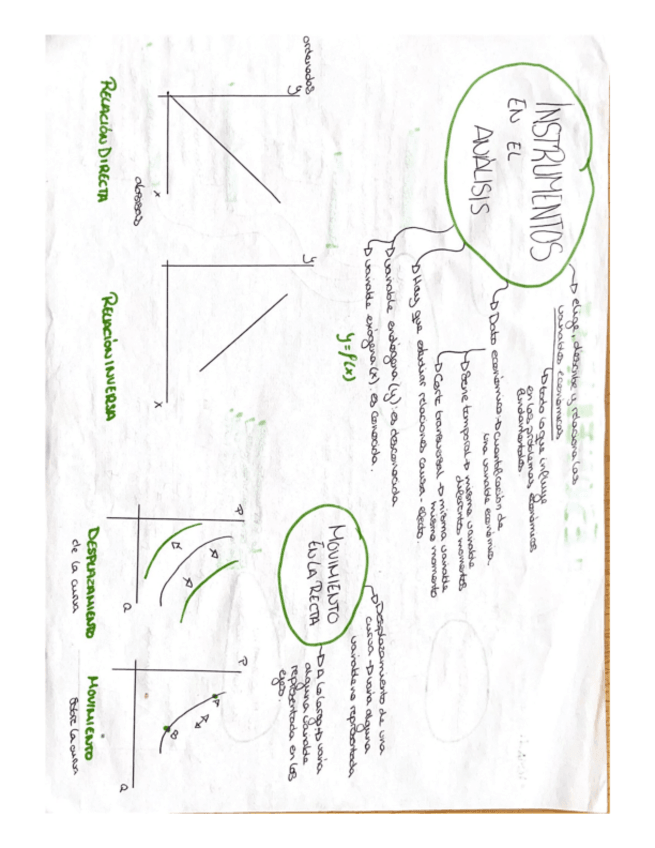 INSTRUMENTOS
EN EL
ANÁLISIS
→ elige, describe y relaciona las
variables económicas
→ todo lo que influye
en los problemas económicos
fundamentales
→ Dato económico → cuantificación de
una variable económica.
→ Serie temporal → misma variable
diferentes momentos
→ Corte transversal → misma variable
mismo momento
→ Hay que estudiar relaciones causa-efecto.
→ variable endógena (y): es desconocida
→ variable exógena (x): es conocida.
y=f(x)
ordenadas
y
x
RELACIÓN DIRECTA
y
x
RELACIÓN INVERSA
MOVIMIENTO
EN LA RECTA
→ Desplazamiento de una
curva → varía alguna
variable no representada
→ A lo largo → varía
alguna variable
representada en los
ejes.
P
Q
DESPLAZAMIENTO
de la curva
P
A
B
Q
MOVIMIENTO
sobre la curva